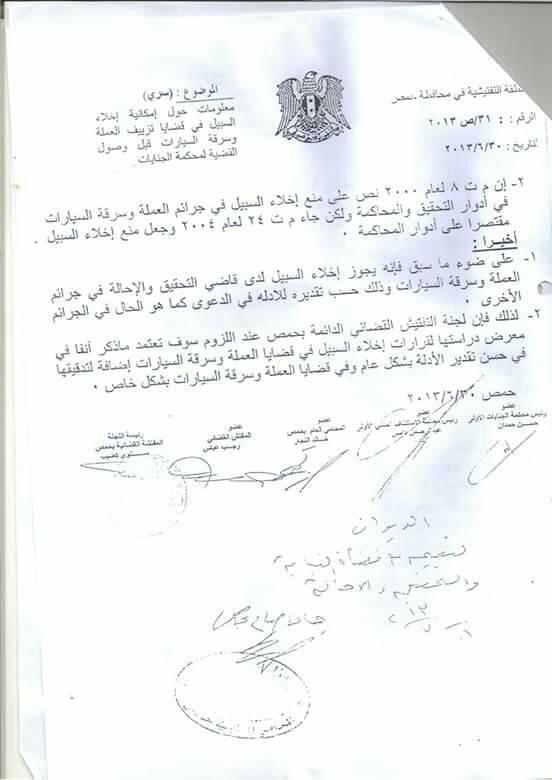 الموضوع : (سري)
معلومات حول إمكانية إخلاء
السبيل في قضايا تزييف العملة
وسرقة السيارات قبل وصول
القضية لمحكمة الجنايات
التفتيشية في محافظة حمص
الرقم : ٣١/ص ٢٠١٣
التاريخ : ٢٠١٣/٦/٣٠
٢- إن م ت ٨ لعام ٢٠٠٠ نص على منع إخلاء السبيل في جرائم العملة وسرقة السيارات
في أدوار التحقيق والمحاكمة ولكن جاء م ت ٢٤ لعام ٢٠٠٤ وجعل منع إخلاء السبيل
مقتصرا على أدوار المحاكمة .
أخيرا :
١- على ضوء ما سبق فإنه يجوز إخلاء السبيل لدى قاضي التحقيق والإحالة في جرائم
العملة وسرقة السيارات وذلك حسب تقديره للادله في الدعوى كما هو الحال في الجرائم
الأخرى .
٢- لذلك فإن لجنة التفتيش القضائي الدائمة بحمص عند اللزوم سوف تعتمد ماذكر آنفا في
معرض دراستها لقرارات إخلاء السبيل في قضايا العملة وسرقة السيارات إضافة لتدقيقها
في حسن تقدير الأدلة بشكل عام وفي قضايا العملة وسرقة السيارات بشكل خاص .
حمص ٢٠١٣/٦/٣٠
عضو
رئيس محكمة الجنايات الأولى
حسن حمدان
عضو
رئيس محكمة الاستئناف المدني الأولى
عضو
المحامي العام بحمص
خالد النجار
عضو
المفتش القضائي
رجب عباس
رئيسة اللجنة
المفتشة القضائية بحمص
الديوان